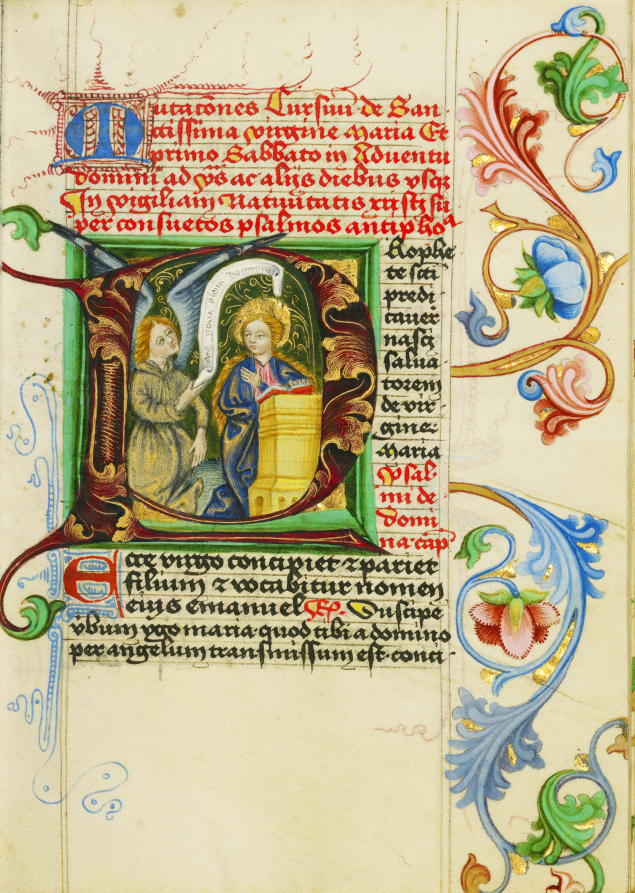 Mutacones Cursiui de San-
ctissima virgine Maria Et
primo Sabbato in Aduentu
domini ad vs ac alijs diebus vsq
In vigiliam Natiuitatis xpisti su
per consuetos psalmos antipho
aue gracia plena dominus
Prophe
te scti
predi
cauer
nasci
salua
torem
de vir
gine
Maria
psal-
mi de
domi
na cap
Ecce virgo concipiet z pariet
filium z vocabitur nomen
eius emanuel Rp. Suscipe
vbum vgo maria quod tibi a domino
per angelum transmissum est conci-